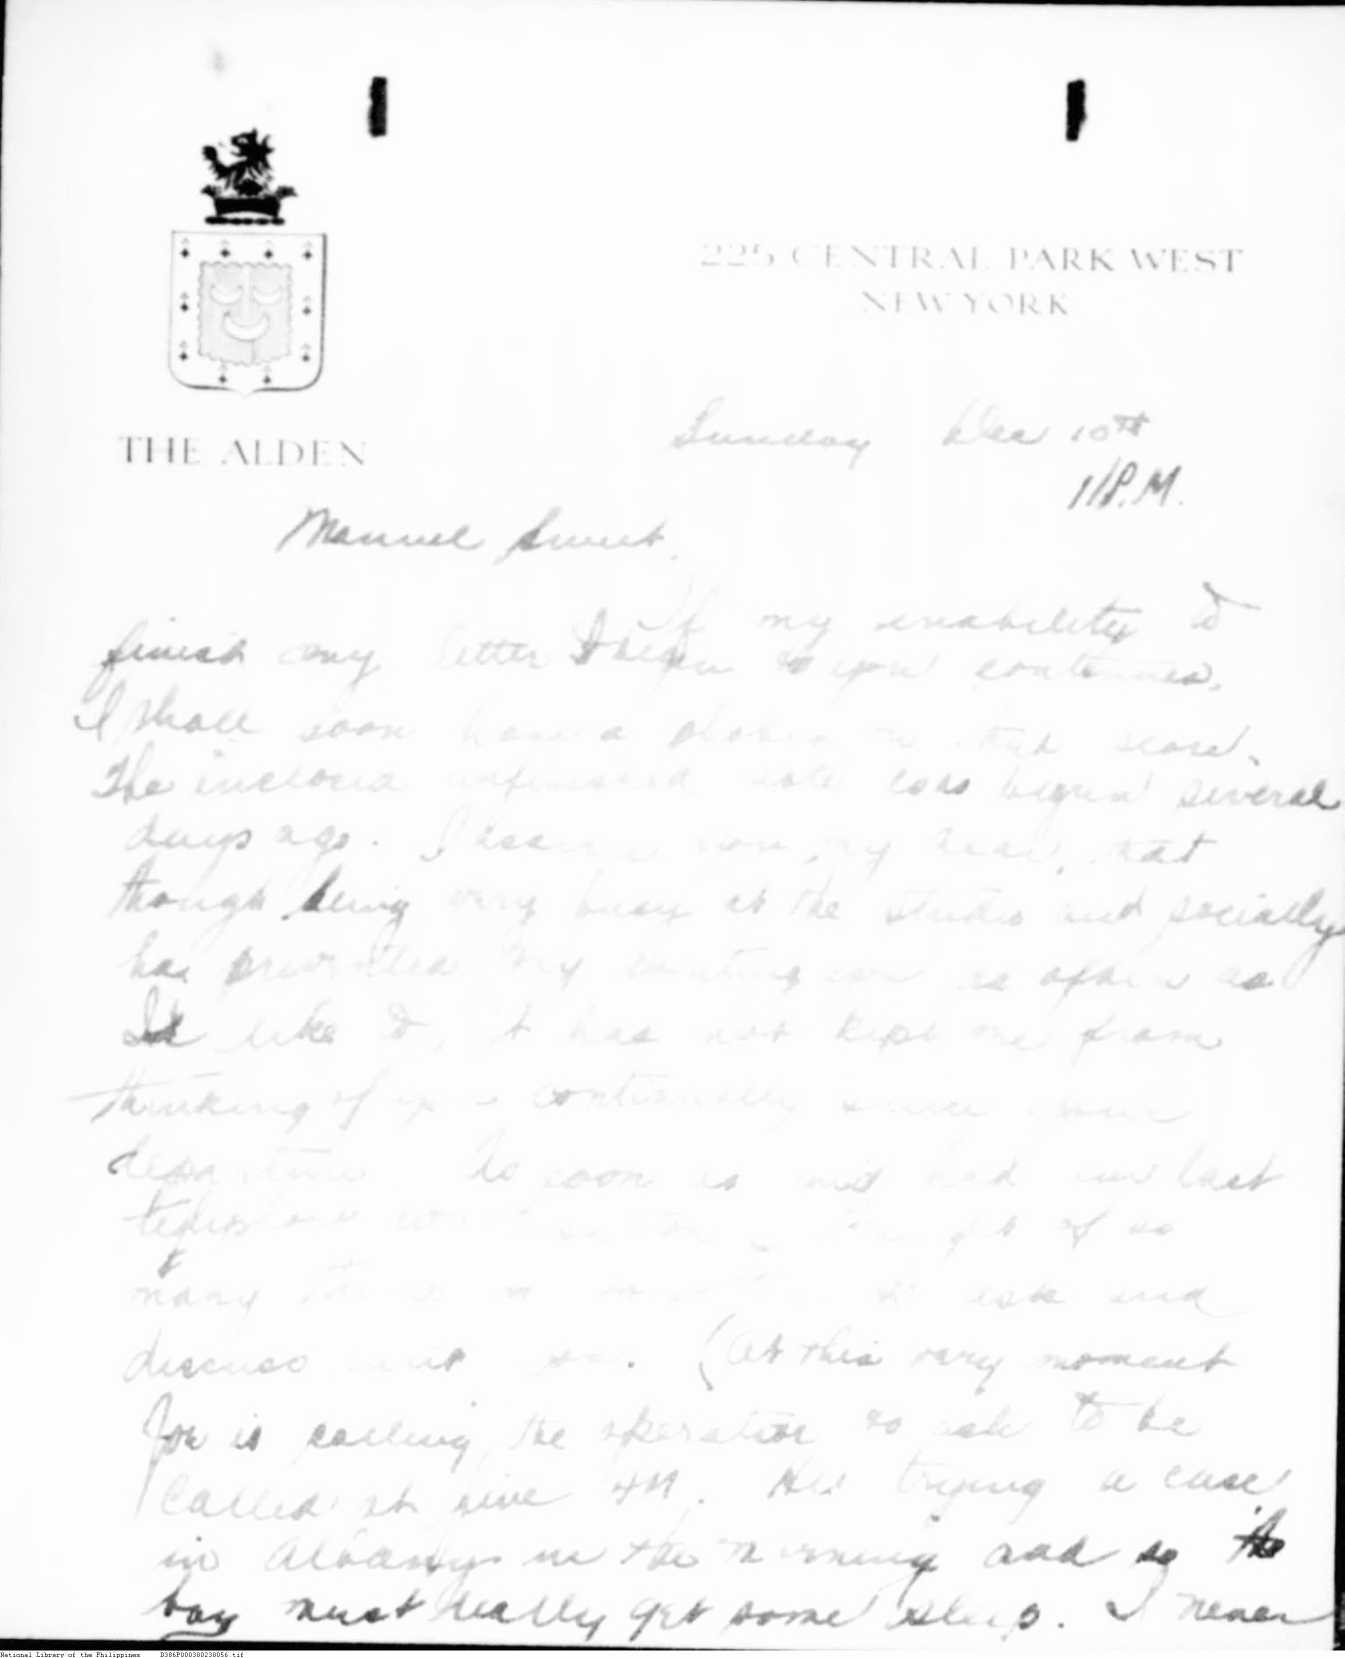 225 CENTRAL PARK WEST
NEW YORK
THE ALDEN
Sunday Dec 10th
11 P.M.
Manuel Sweet.
If my inability to
finish any letter I begin to you continues,
I shall soon have a on that score.
The inclosed unfinished note was begun several
days ago. I assure you, my dear, that
though being very busy at the studio and socially
has prevented my writing you as often as
I'd like to, it has not kept me from
thinking of you continually since your
departure. As soon as we'd had our last
telephone thought of so
many to ask and
discuss with you. (At this very moment
Joe is calling the operator to ask to be
called at five AM. He's trying a case
in Albany in the morning and so the
boy must really get some sleep. I never
National Library of the Philippines D386P000380238056.tif